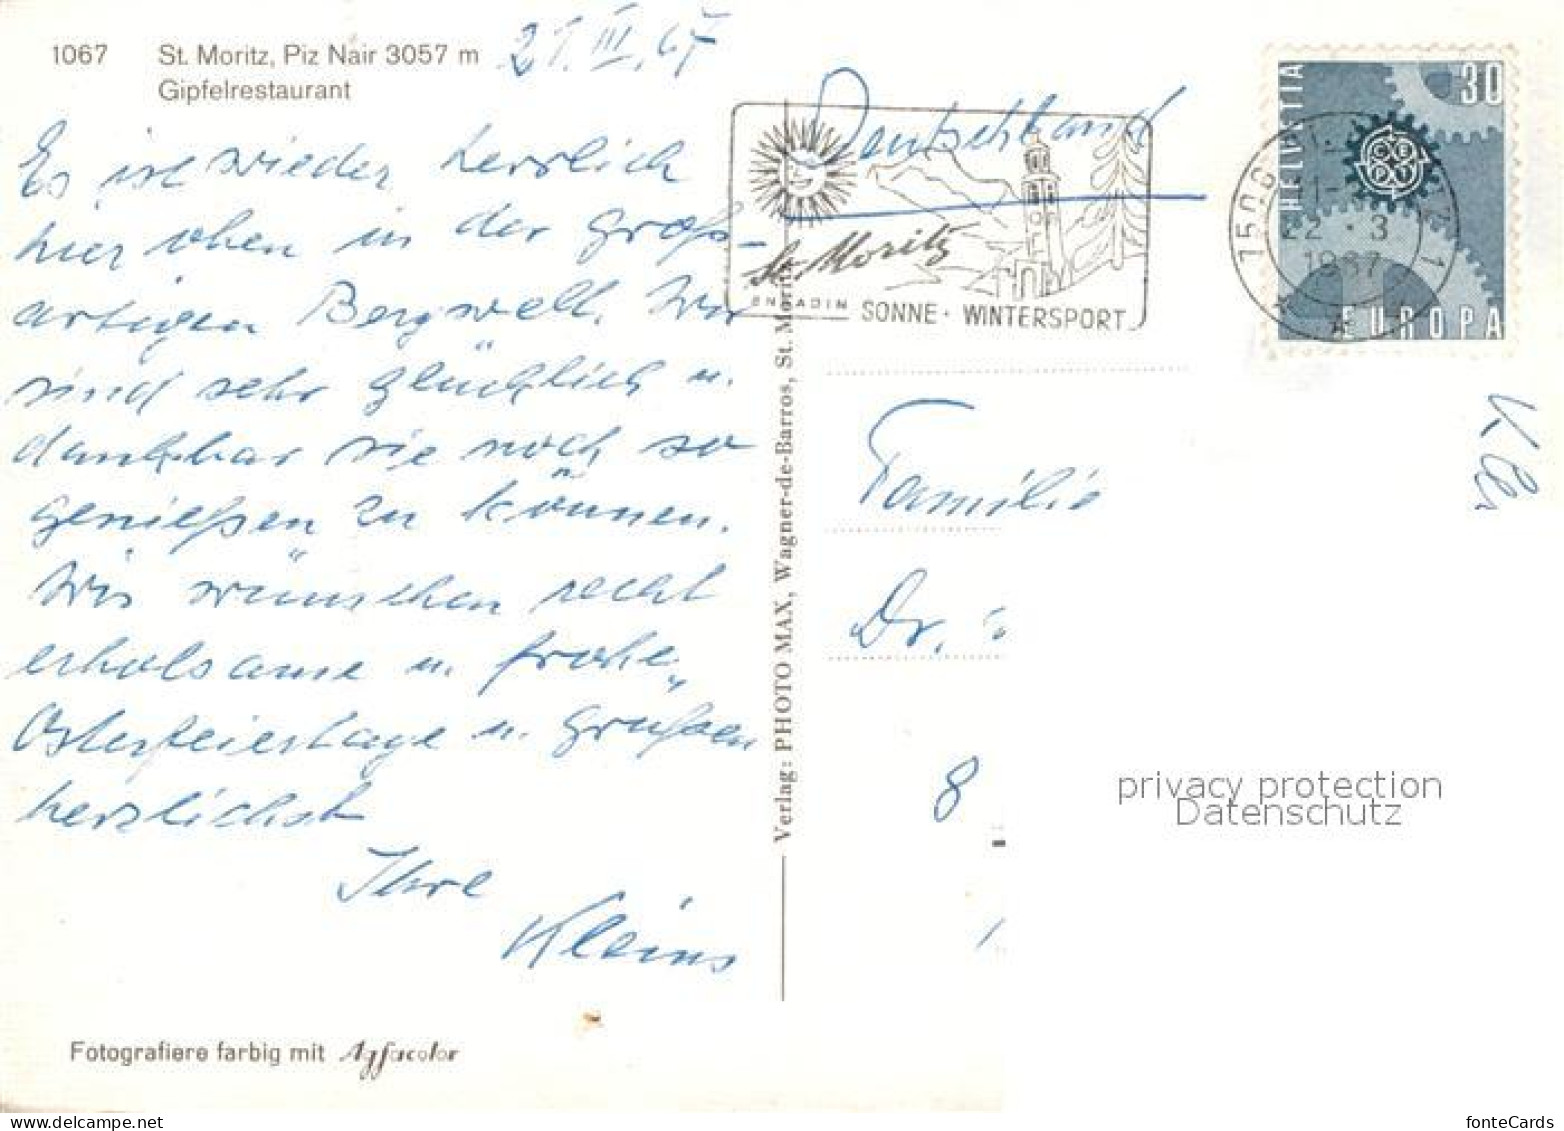 1067 St. Moritz, Piz Nair 3057 m
Gipfelrestaurant
21.III.67
Es ist wieder herrlich
hier oben in der groß-
artigen Bergwelt. Wir
sind sehr glücklich u.
dankbar sie noch so
genießen zu können.
Wir wünschen recht
erholsame u. frohe
Osterfeiertage u. grüßen
herzlichst
Ihre
Kleins
Fotografiere farbig mit Agfacolor
Verlag: PHOTO MAX, Wagner-de-Barros, St. Moritz
Deutschland
St. Moritz
ENGADIN SONNE · WINTERSPORT
7500
22 · 3
1967
HELVETIA
30
CEPT
EUROPA
Familie
Dr.
8
privacy protection
Datenschutz
fonteCards